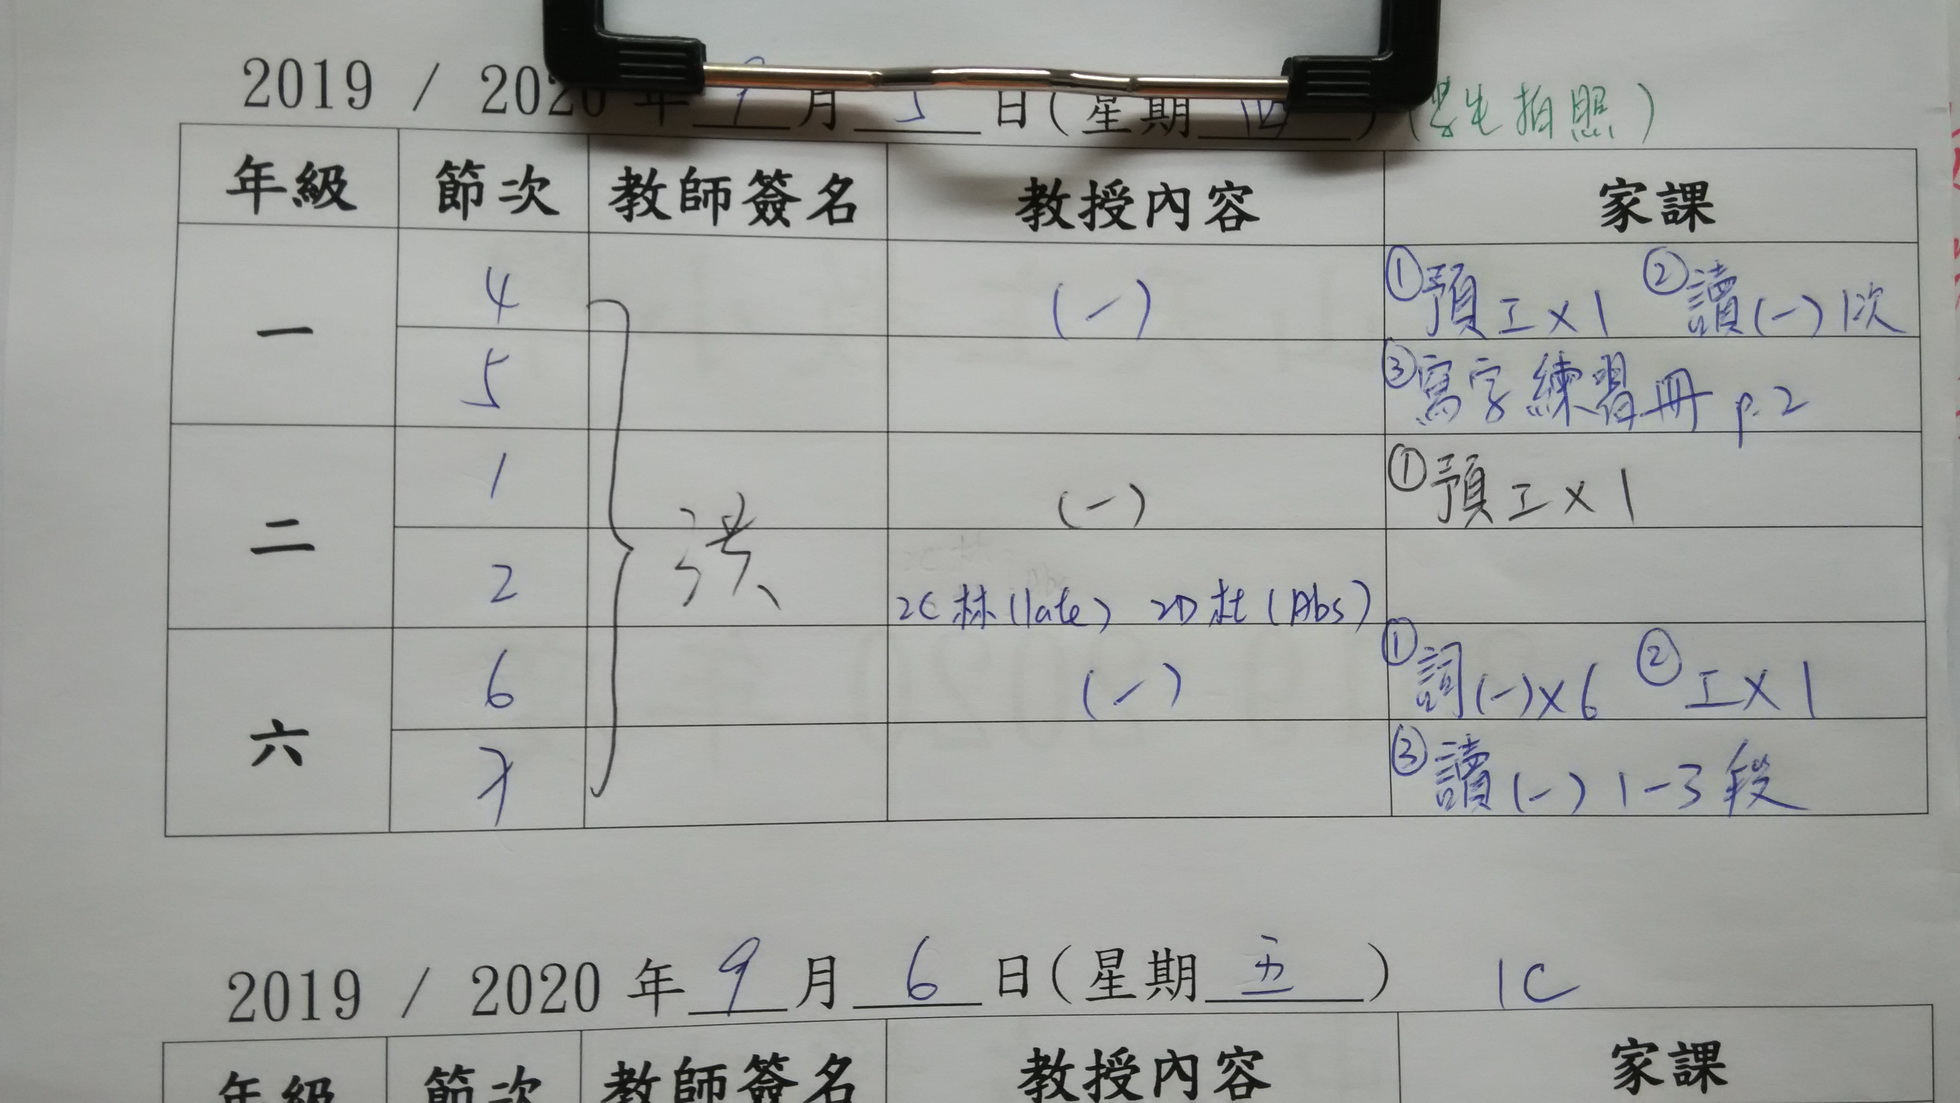 2019 / 2020 年 9 月 5 日(星期 四 ) (學生拍照)
年級 節次 教師簽名 教授內容 家課
一 4 (一) ①預工x1 ②讀(一)1次
5 ③寫字練習冊 p.2
二 1 (一) ①預工x1
洪
2 2C林(late) 2D杜(Abs)
六 6 (一) ①詞(一)x6 ②工x1
7 ③讀(一)1-3段
2019 / 2020 年 9 月 6 日(星期 五 ) 1C
年級 節次 教師簽名 教授內容 家課